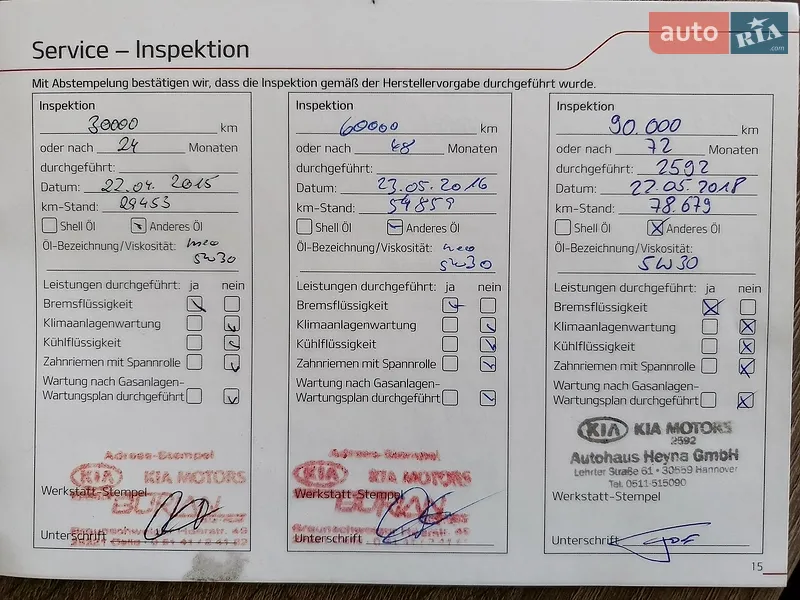 auto RIA .com
Service – Inspektion
Mit Abstempelung bestätigen wir, dass die Inspektion gemäß der Herstellervorgabe durchgeführt wurde.
Inspektion
30000 km
oder nach 24 Monaten
durchgeführt:
Datum: 22.04. 2015
km-Stand: 29453
Shell Öl Anderes Öl
Öl-Bezeichnung/Viskosität:
5W30
Leistungen durchgeführt: ja nein
Bremsflüssigkeit
Klimaanlagenwartung
Kühlflüssigkeit
Zahnriemen mit Spannrolle
Wartung nach Gasanlagen-
Wartungsplan durchgeführt
Adress-Stempel
KIA KIA MOTORS
Werkstatt-Stempel
BURIAN
Unterschrift
Inspektion
60000 km
oder nach 48 Monaten
durchgeführt:
Datum: 23.05.2016
km-Stand: 54859
Shell Öl Anderes Öl
Öl-Bezeichnung/Viskosität:
5W30
Leistungen durchgeführt: ja nein
Bremsflüssigkeit
Klimaanlagenwartung
Kühlflüssigkeit
Zahnriemen mit Spannrolle
Wartung nach Gasanlagen-
Wartungsplan durchgeführt
Adress-Stempel
KIA KIA MOTORS
Werkstatt-Stempel
BURIAN
Unterschrift
Inspektion
90.000 km
oder nach 72 Monaten
durchgeführt: 2592
Datum: 22.05.2018
km-Stand: 78.679
Shell Öl Anderes Öl
Öl-Bezeichnung/Viskosität:
5W30
Leistungen durchgeführt: ja nein
Bremsflüssigkeit
Klimaanlagenwartung
Kühlflüssigkeit
Zahnriemen mit Spannrolle
Wartung nach Gasanlagen-
Wartungsplan durchgeführt
KIA KIA MOTORS
2592
Autohaus Heyna GmbH
Lehrter Straße 61 · 30559 Hannover
Tel. 0511-515090
Werkstatt-Stempel
Unterschrift
15